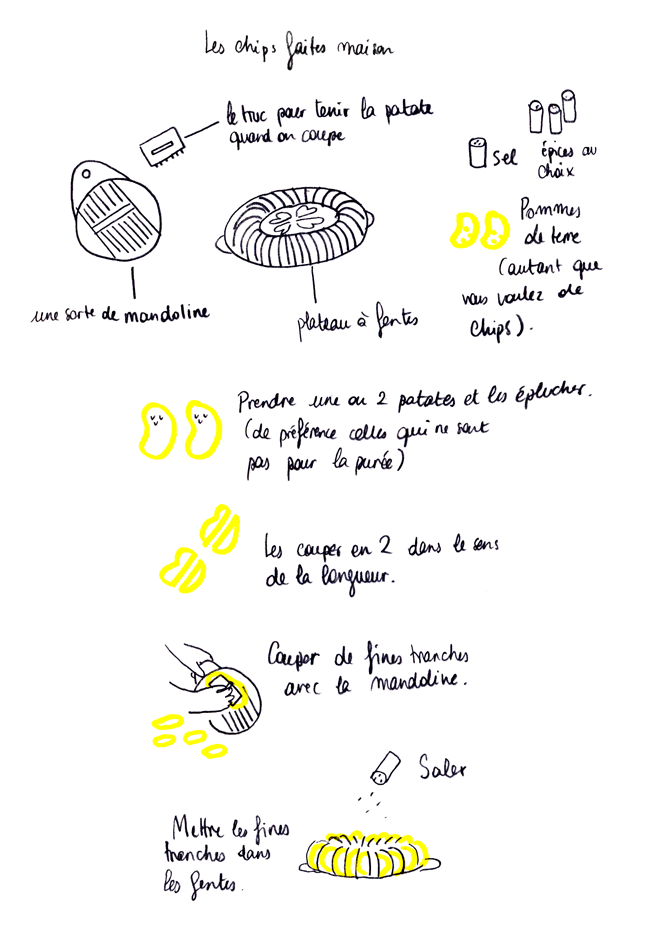 Les chips faites maison
le truc pour tenir la patate
quand on coupe
sel
épices au
choix
Pommes
de terre
(autant que
vous voulez de
chips).
une sorte de mandoline
plateau à fentes
Prendre une ou 2 patates et les éplucher.
(de préférence celles qui ne sont
pas pour la purée)
Les couper en 2 dans le sens
de la longueur.
Couper de fines tranches
avec la mandoline.
Saler
Mettre les fines
tranches dans
les fentes.